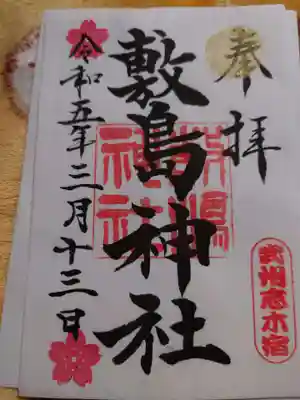 奉拝
敷島神社
令和五年三月十三日
敷島神社
武州志木宿